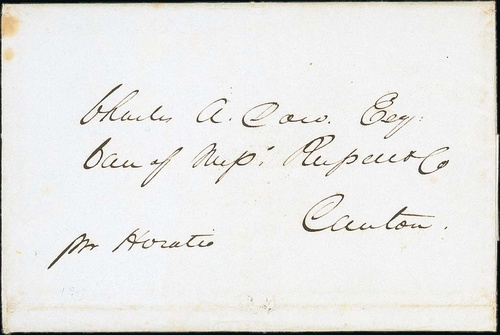 Charles A. Dow. Esq.
Care of Messrs. Russell & Co
Canton.
pr Horatio